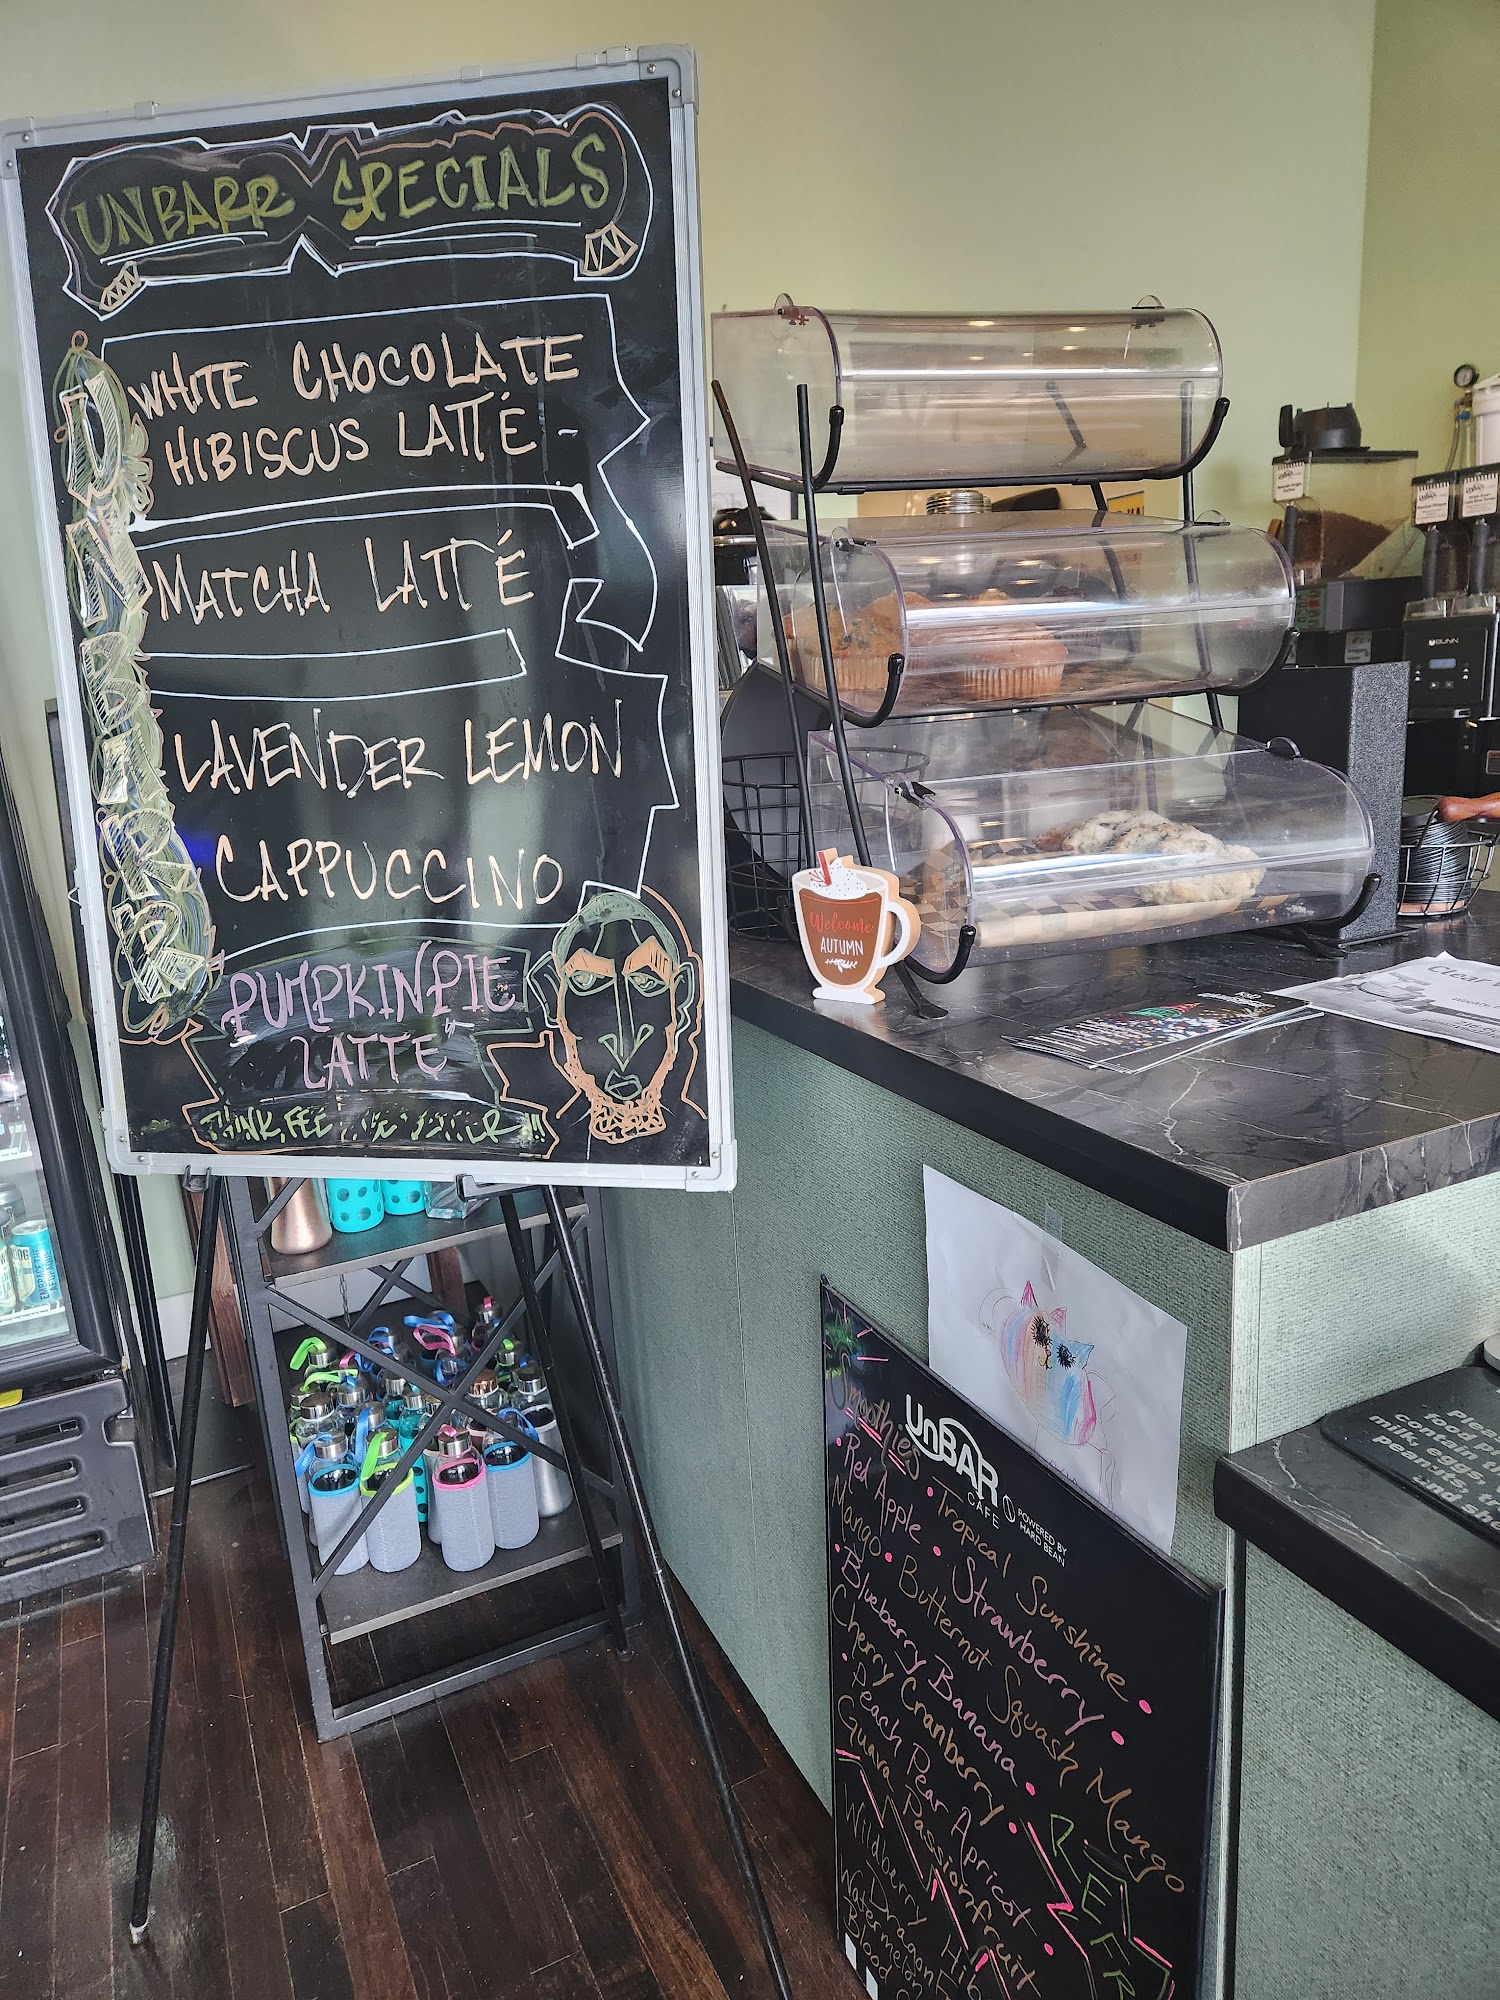 UNBARR SPECIALS
WHITE CHOCOLATE
HIBISCUS LATTÉ
MATCHA LATTÉ
LAVENDER LEMON
CAPPUCCINO
PUMPKIN PIE
LATTE
THINK, FEE
UNDBTRRR
Welcome
AUTUMN
BUNN
UnBAR
CAFE
POWERED BY
HARD BEAN
Smoothies
• Tropical Sunshine •
Red Apple • Strawberry •
Mango • Butternut Squash Mango
• Blueberry Banana •
Cherry Cranberry •
• Peach Pear Apricot •
Guava Passionfruit
Wildberry Hib
Dragon
Watermelon
Blood
Pleas
food pr
contain th
milk, eggs,
peanuts, tr
and she
Clear